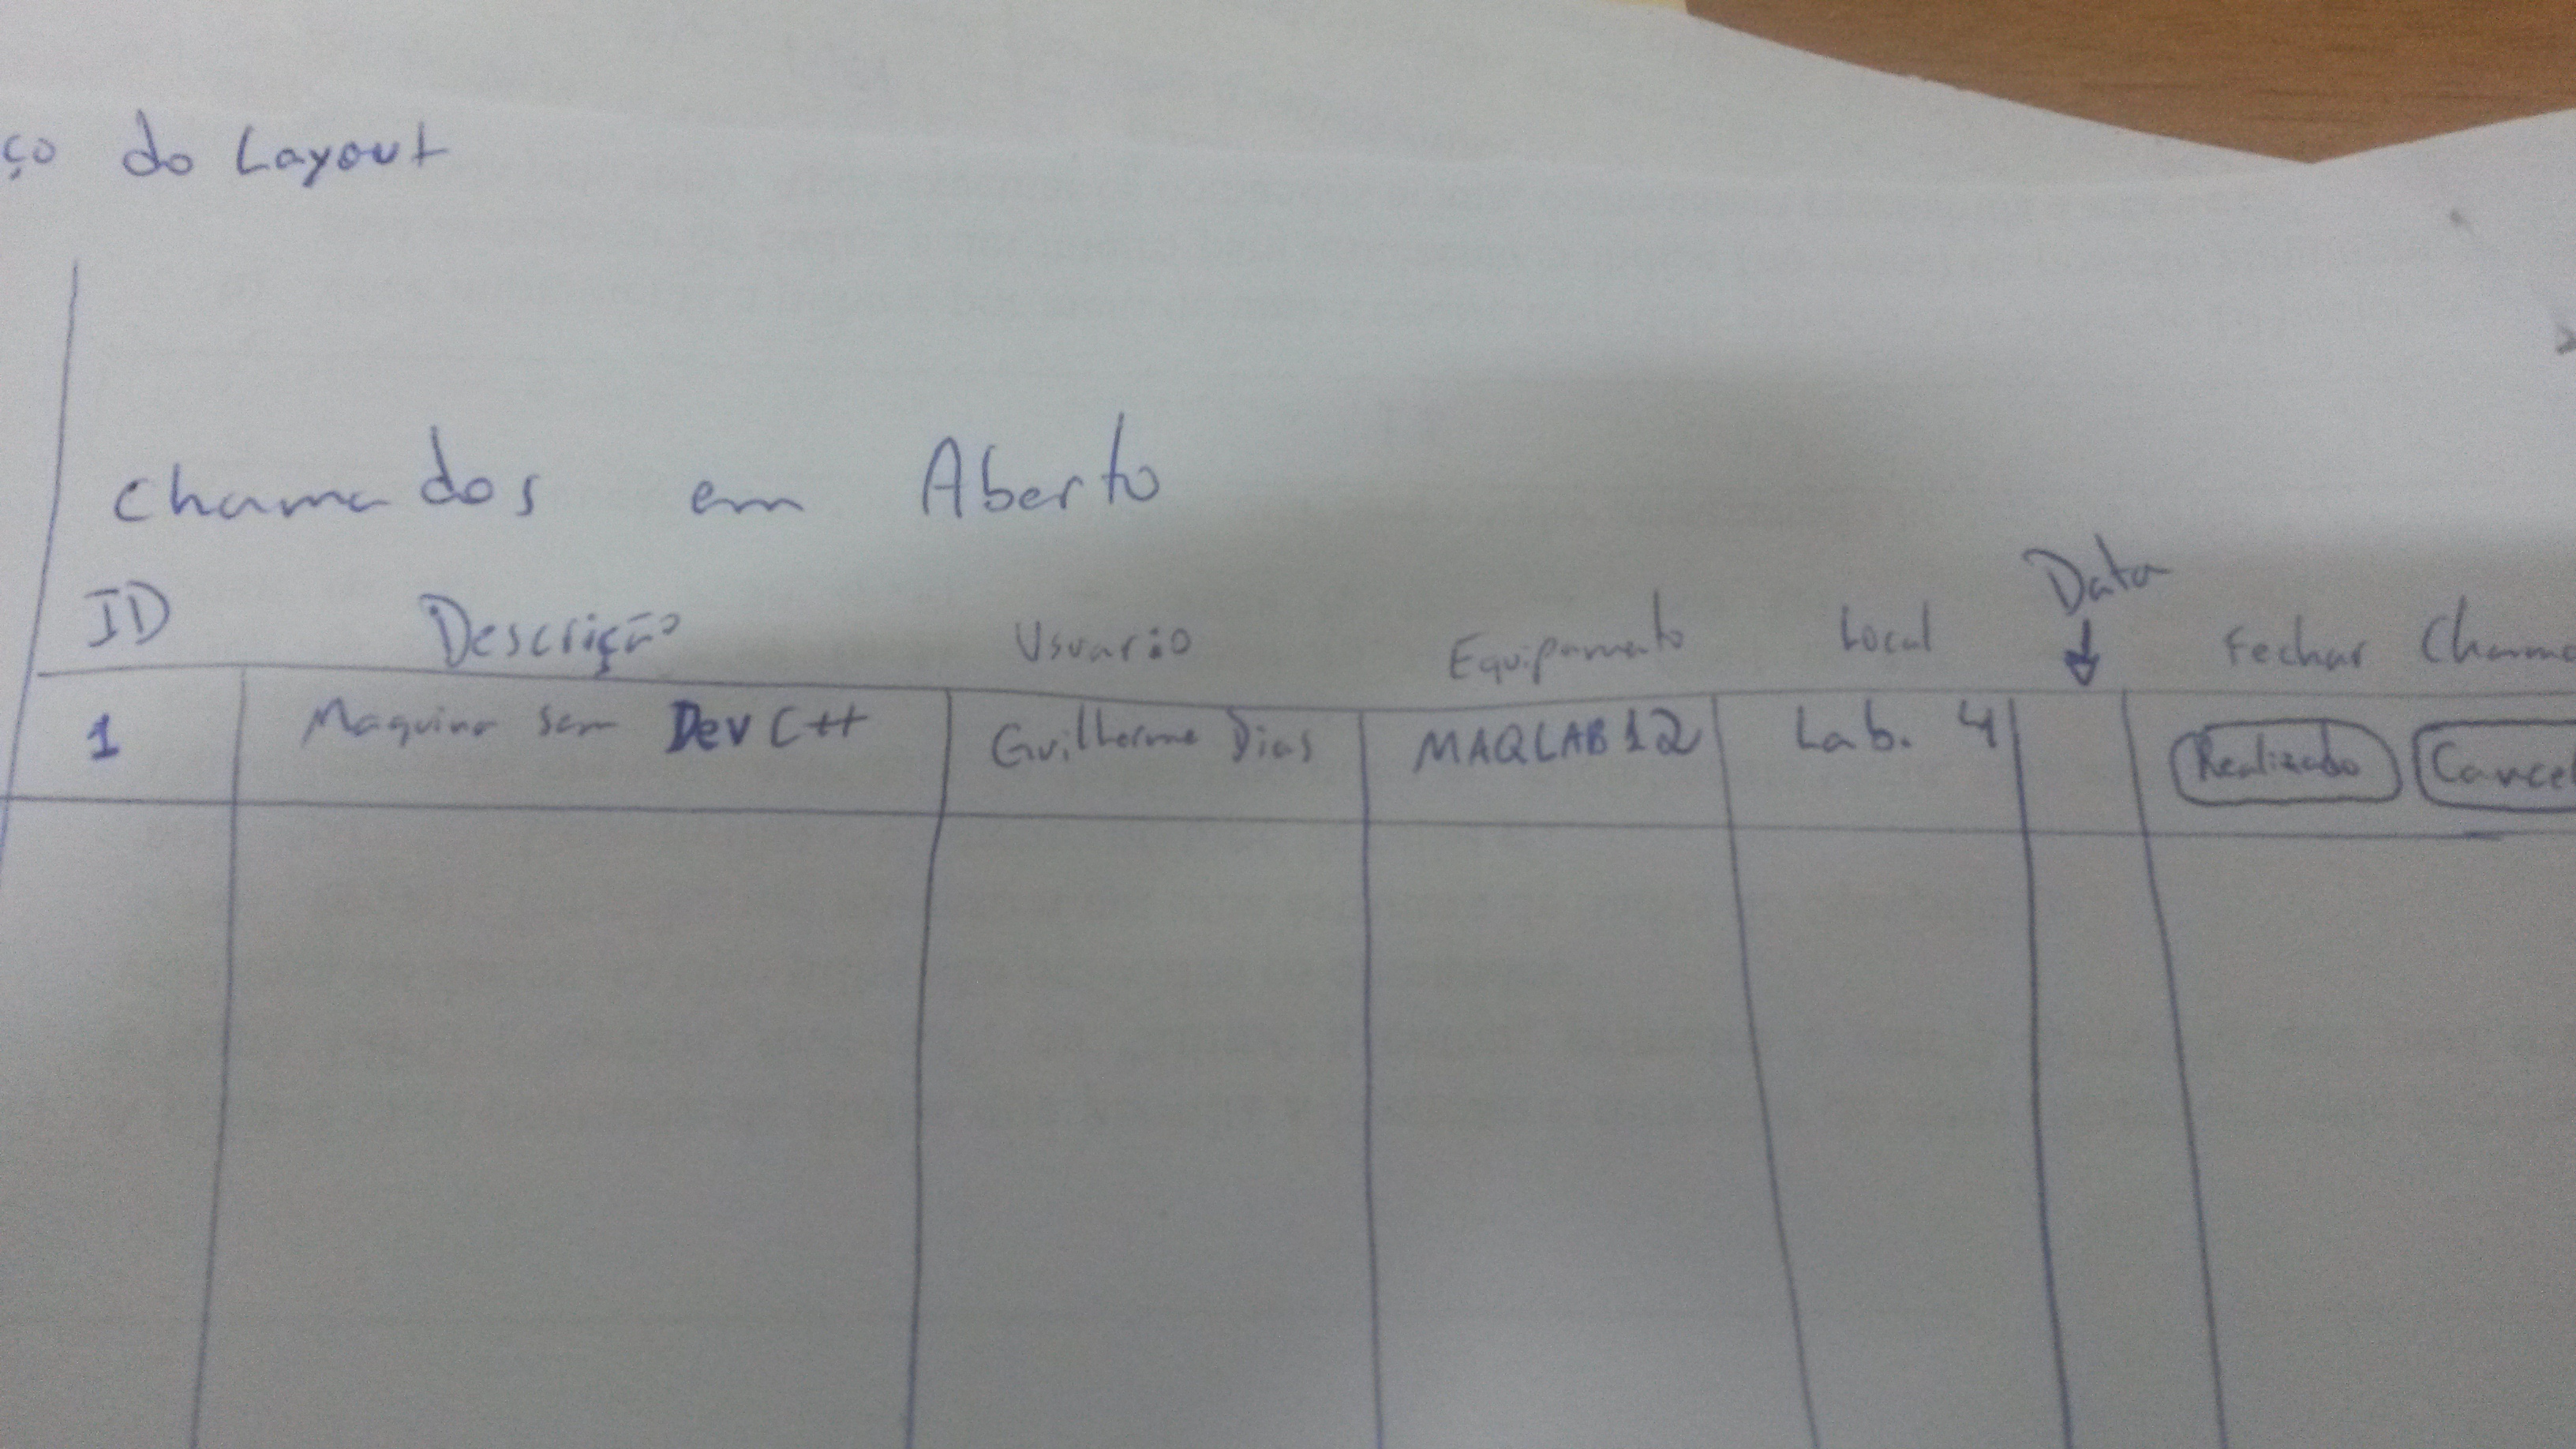 ço do Layout
Chamados em Aberto
ID Descrição Usuario Equipamento Local Data Fechar Chama
1 Maquina sem Dev C++ Guilherme Dias MAQLAB12 Lab. 4 Realizado Cancel